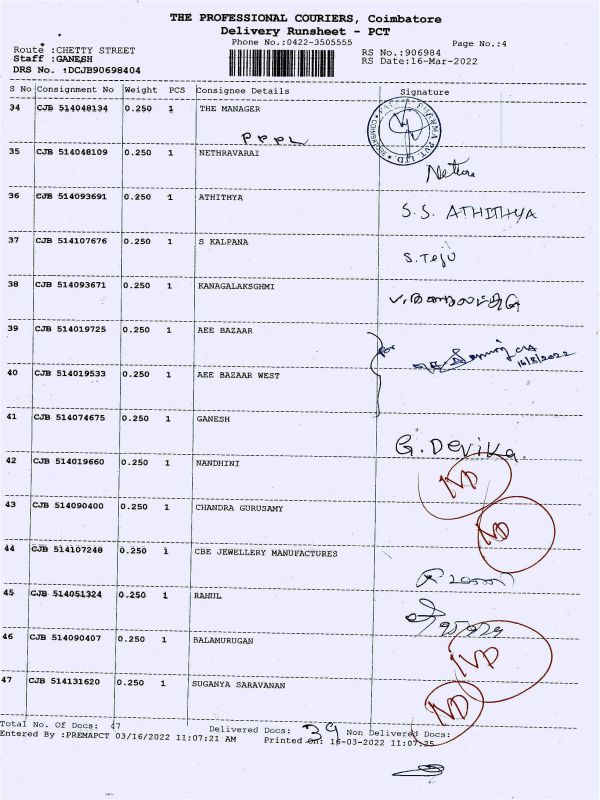 THE PROFESSIONAL COURIERS, Coimbatore
Delivery Runsheet - PCT
Phone No.:0422-3505555 Page No.:4
Route :CHETTY STREET RS No.:906984
Staff :GANESH RS Date:16-Mar-2022
DRS No. :DCJB90698404
S No Consignment No Weight PCS Consignee Details Signature
34 CJB 514048134 0.250 1 THE MANAGER
PPPL
35 CJB 514048109 0.250 1 NETHRAVARAI
36 CJB 514093691 0.250 1 ATHITHYA S.S. ATHITHYA
37 CJB 514107676 0.250 1 S KALPANA S.Teju
38 CJB 514093671 0.250 1 KANAGALAKSGHMI
39 CJB 514019725 0.250 1 AEE BAZAAR
16/3/2022
40 CJB 514019533 0.250 1 AEE BAZAAR WEST
41 CJB 514074675 0.250 1 GANESH G. Devika.
42 CJB 514019660 0.250 1 NANDHINI ND
43 CJB 514090400 0.250 1 CHANDRA GURUSAMY ND
44 CJB 514107248 0.250 1 CBE JEWELLERY MANUFACTURES
45 CJB 514051324 0.250 1 RAHUL
46 CJB 514090407 0.250 1 BALAMURUGAN ND
47 CJB 514131620 0.250 1 SUGANYA SARAVANAN ND
Total No. Of Docs: 47 Delivered Docs: 39 Non Delivered Docs:
Entered By :PREMAPCT 03/16/2022 11:07:21 AM Printed On: 16-03-2022 11:07:25